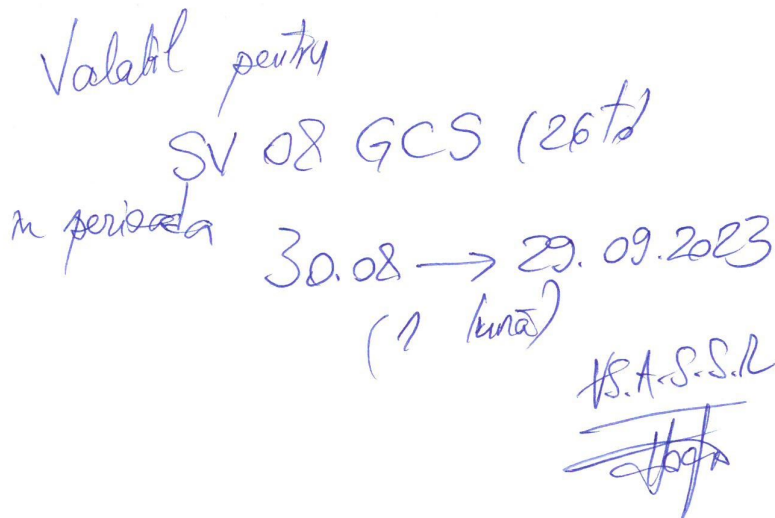 Valabil pentru
SV 08 GCS (26 to)
în perioada
30.08 → 29.09.2023
(1 lună)